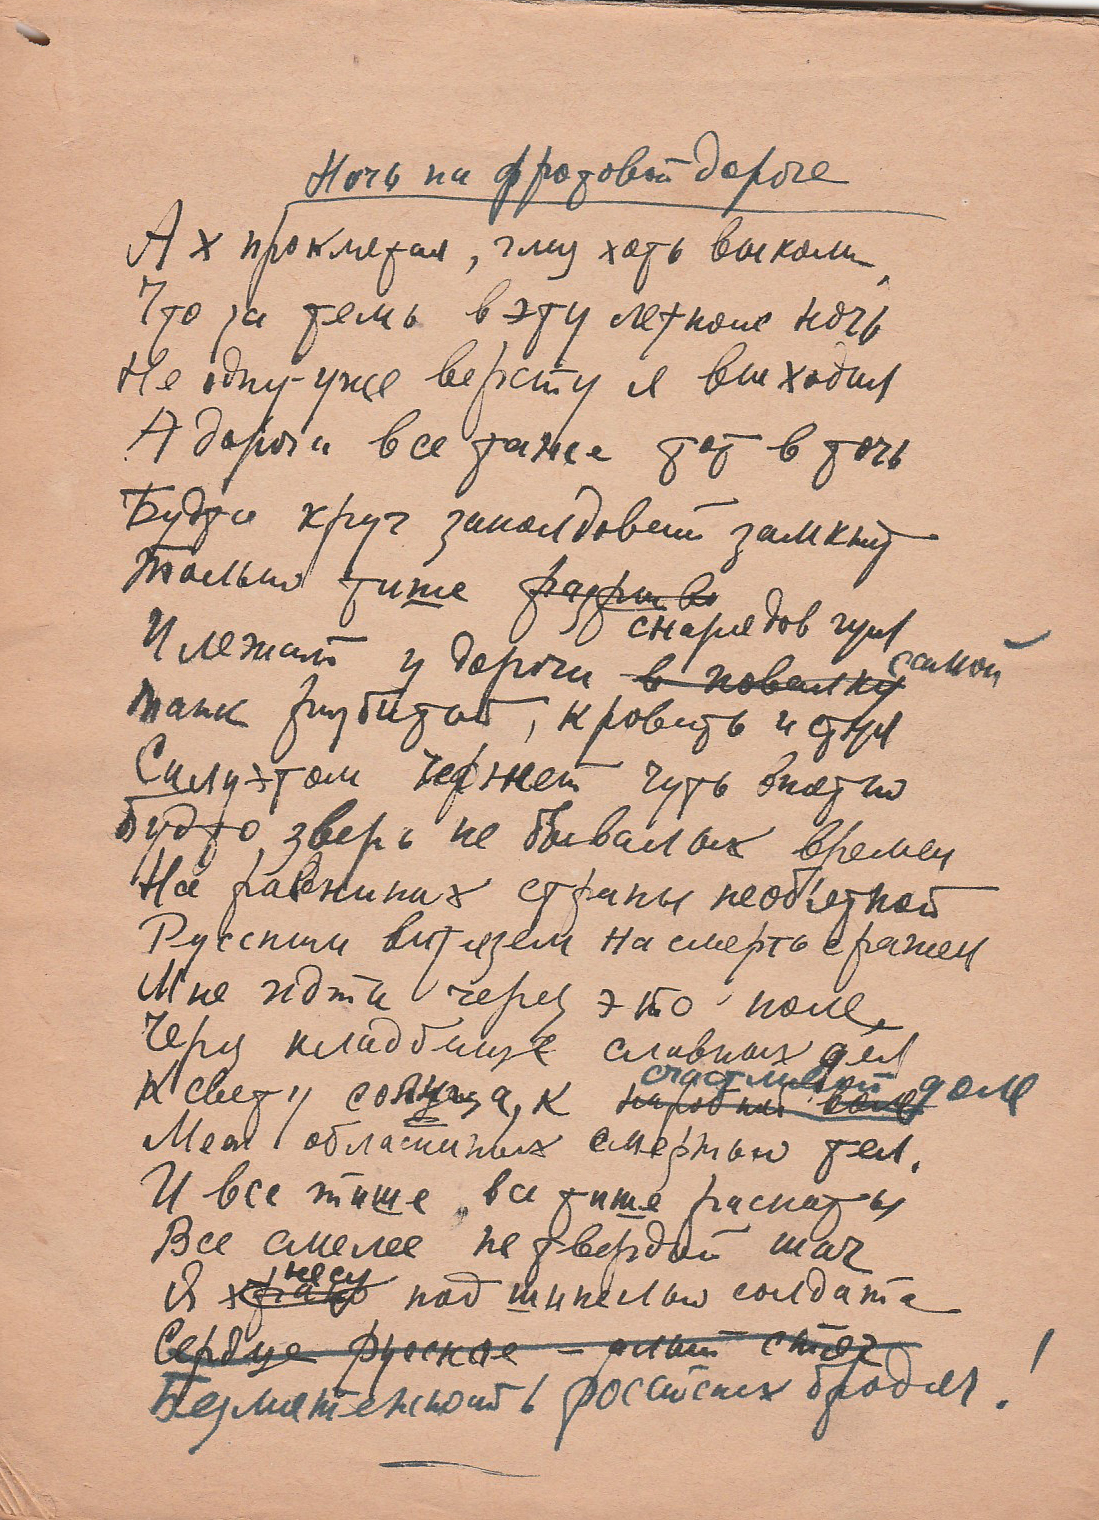 Ночь на фротовой дороге
Ах проклятая, глуз хоть выколи,
Что за темь в эту летнюю ночь
Не одну уже версту я выходил
А дорога все таже тот в точь
Будто круг заколдовый замкнут
Только тише разрывов
снарядов гул
И лежит у дороги в повалку самой
Танк разбитый, кровать и стул
Силуэтом чернеет чуть внятно
Будто зверь не бывалых времен
На равнинах страны необ'ятной
Русским витязем на смерть сражен
Мне идти через это поле,
Через кладбище славных дел
счастливой доле
К свету солнца, к народной воле
Меж обласканных смертью тел.
И все тише, все тише раскаты
Все смелее не твердый шаг
несу
Я храню под шинелью солдата
Сердце русское – алый стяг
Безмятежность российских бродяг.!